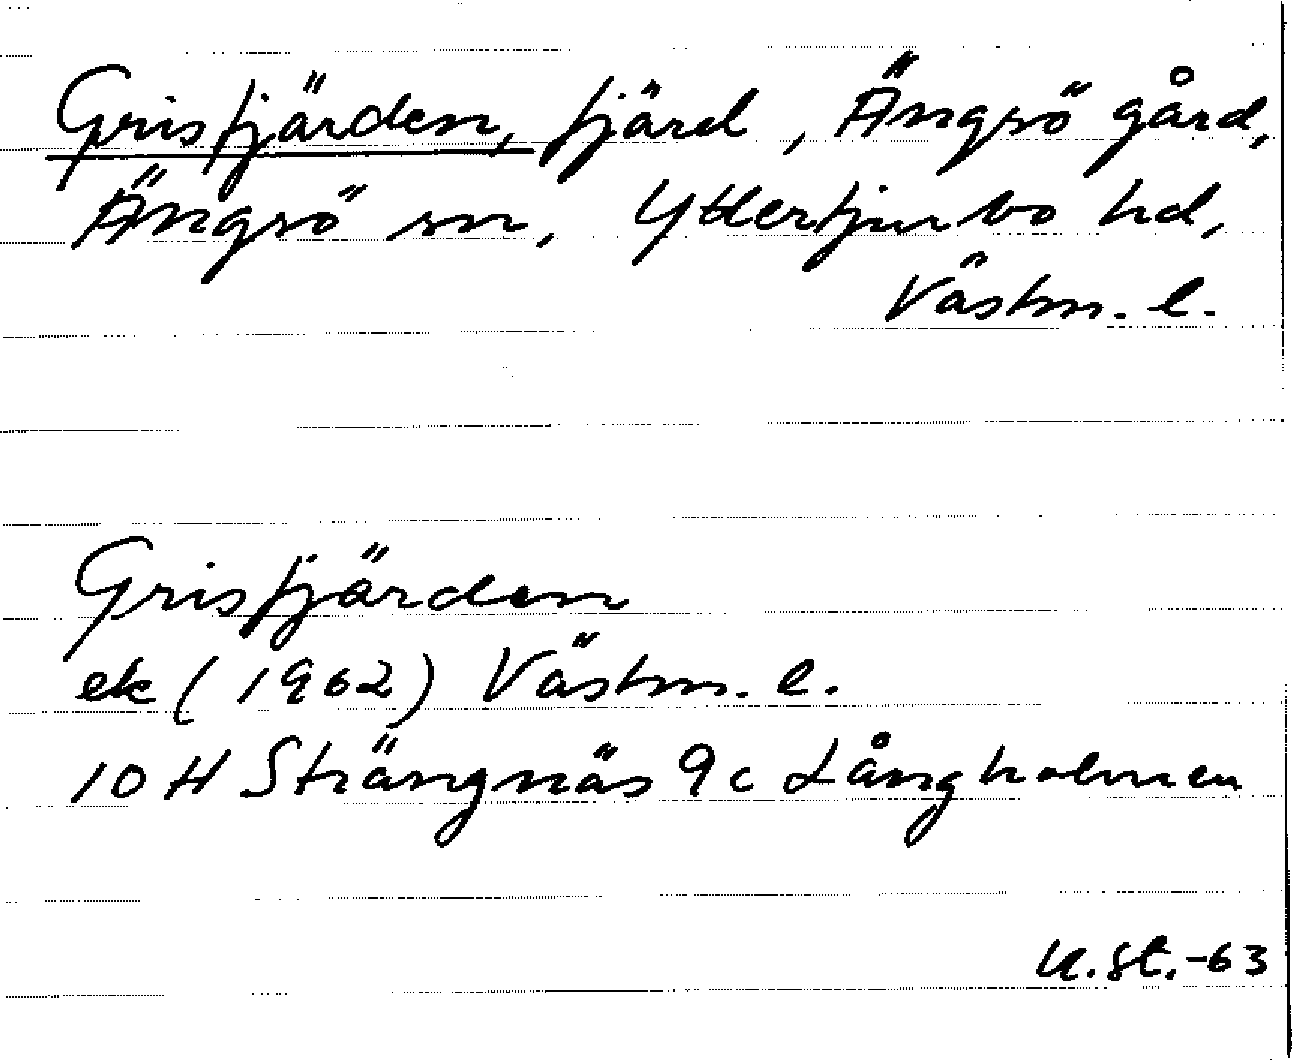 Grisfjärden, fjärd, Ängsö gård,
Ängsö sn, Yttertjurbo hd,
Västm. l.
Grisfjärden
ek (1962) Västm. l.
10 H Strängnäs 9 c Långholmen
U.St.-63